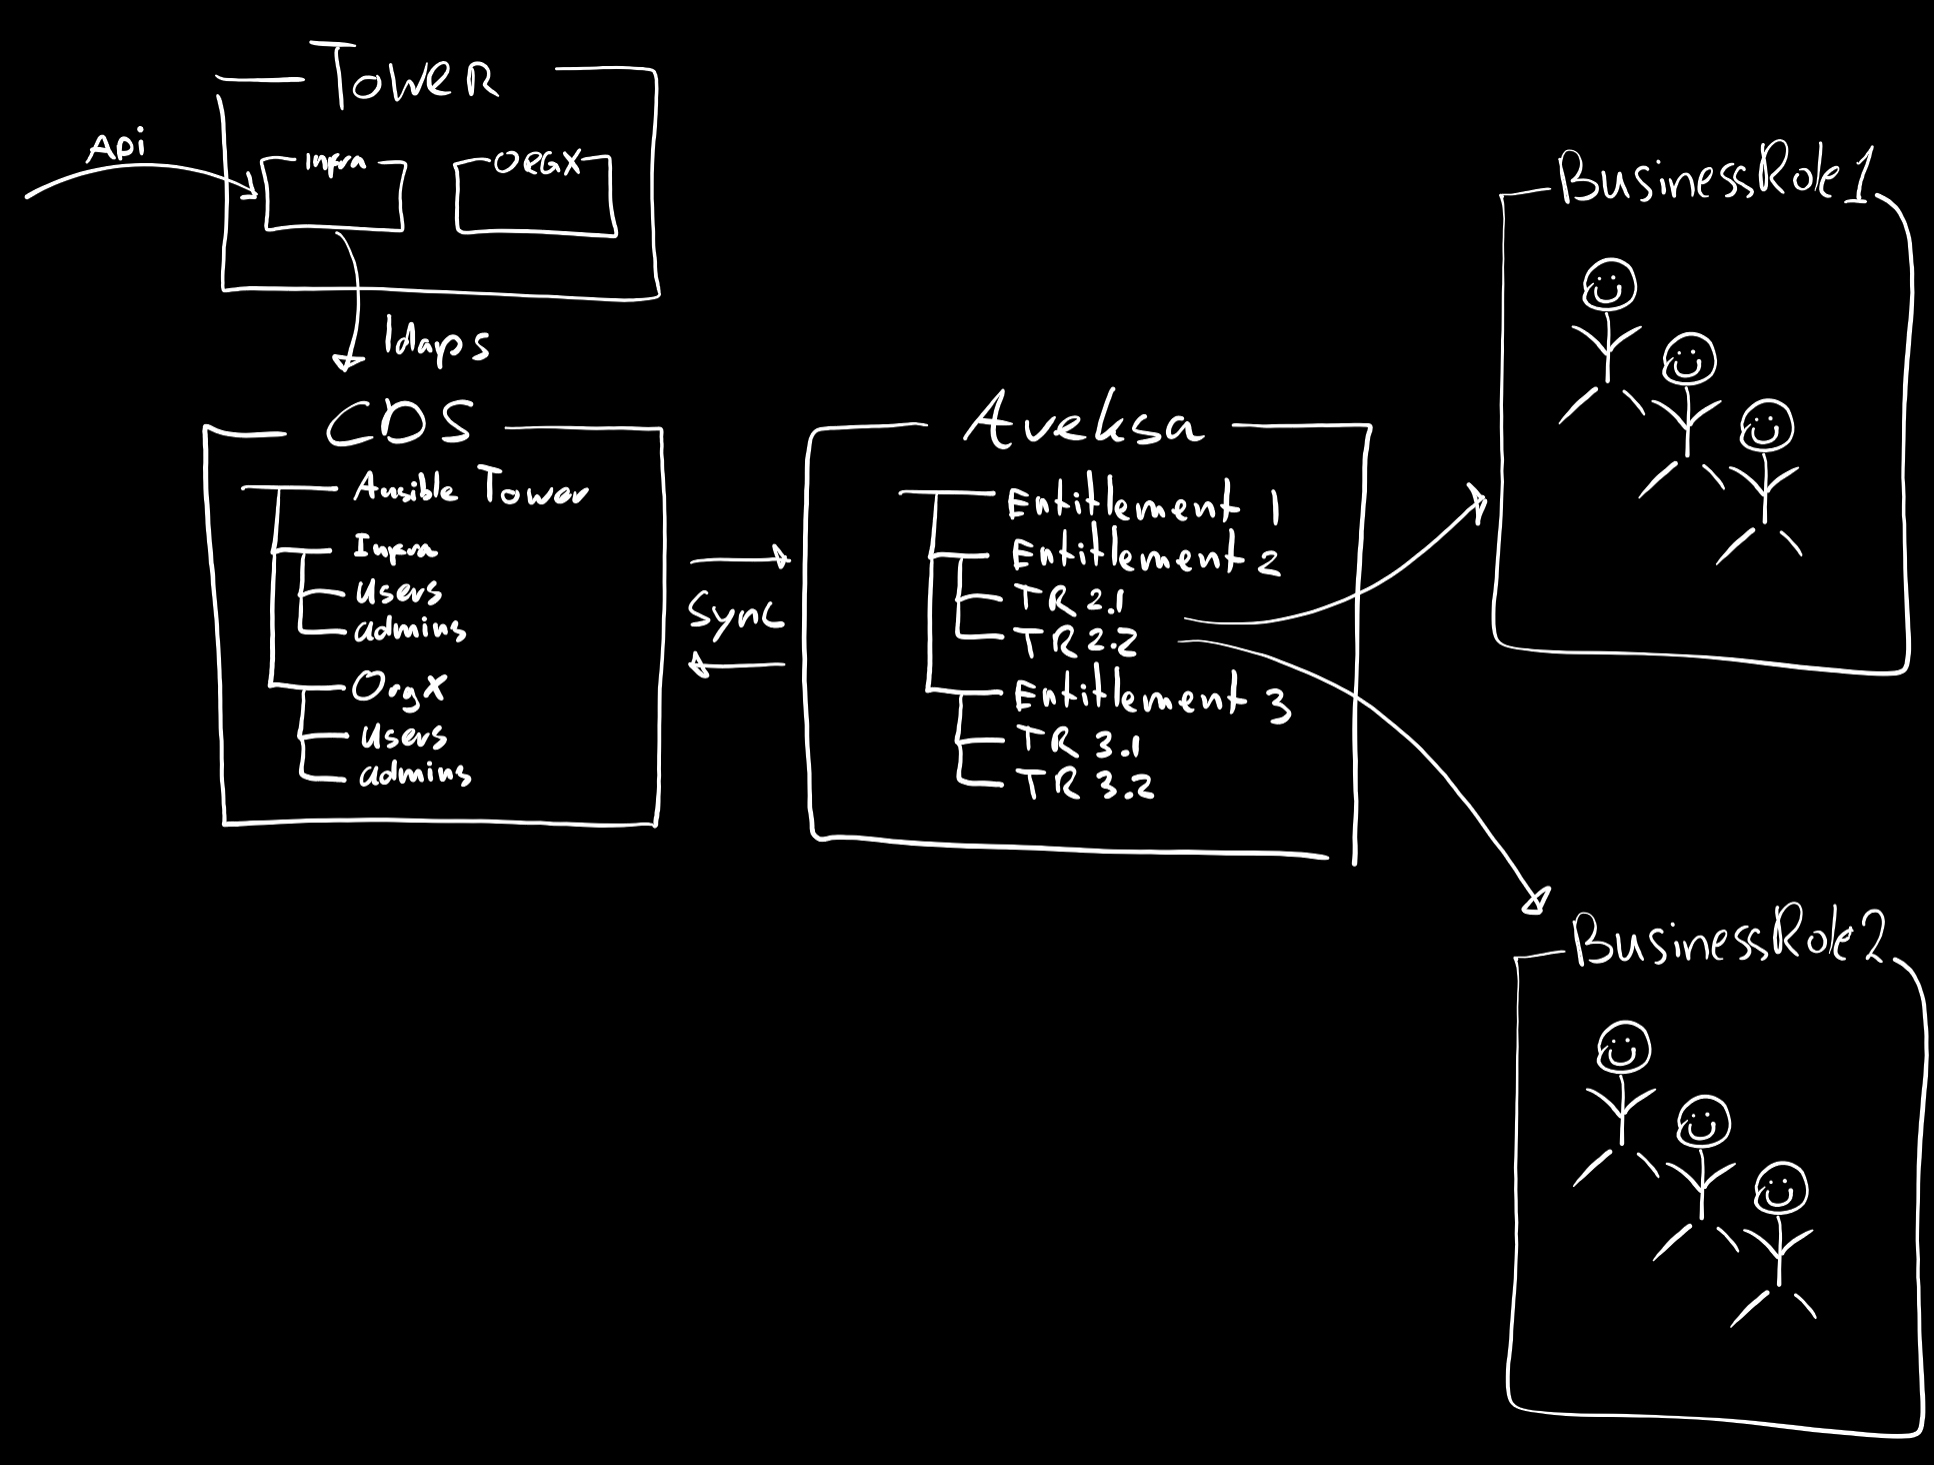 Tower
Api
Infra
ORGX
ldaps
CDS
Ansible Tower
Infra
Users
admins
OrgX
Users
admins
Sync
Aveksa
Entitlement 1
Entitlement 2
TR 2.1
TR 2.2
Entitlement 3
TR 3.1
TR 3.2
BusinessRole1
BusinessRole2